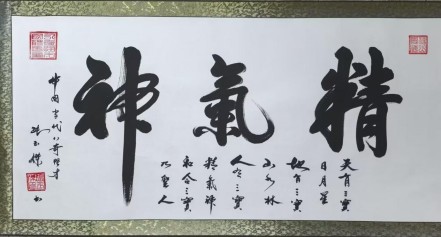 精氣神
天有三寶
日月星
地有三寶
水火林
人有三寶
精氣神
和合三寶
乃聖人
中國當代